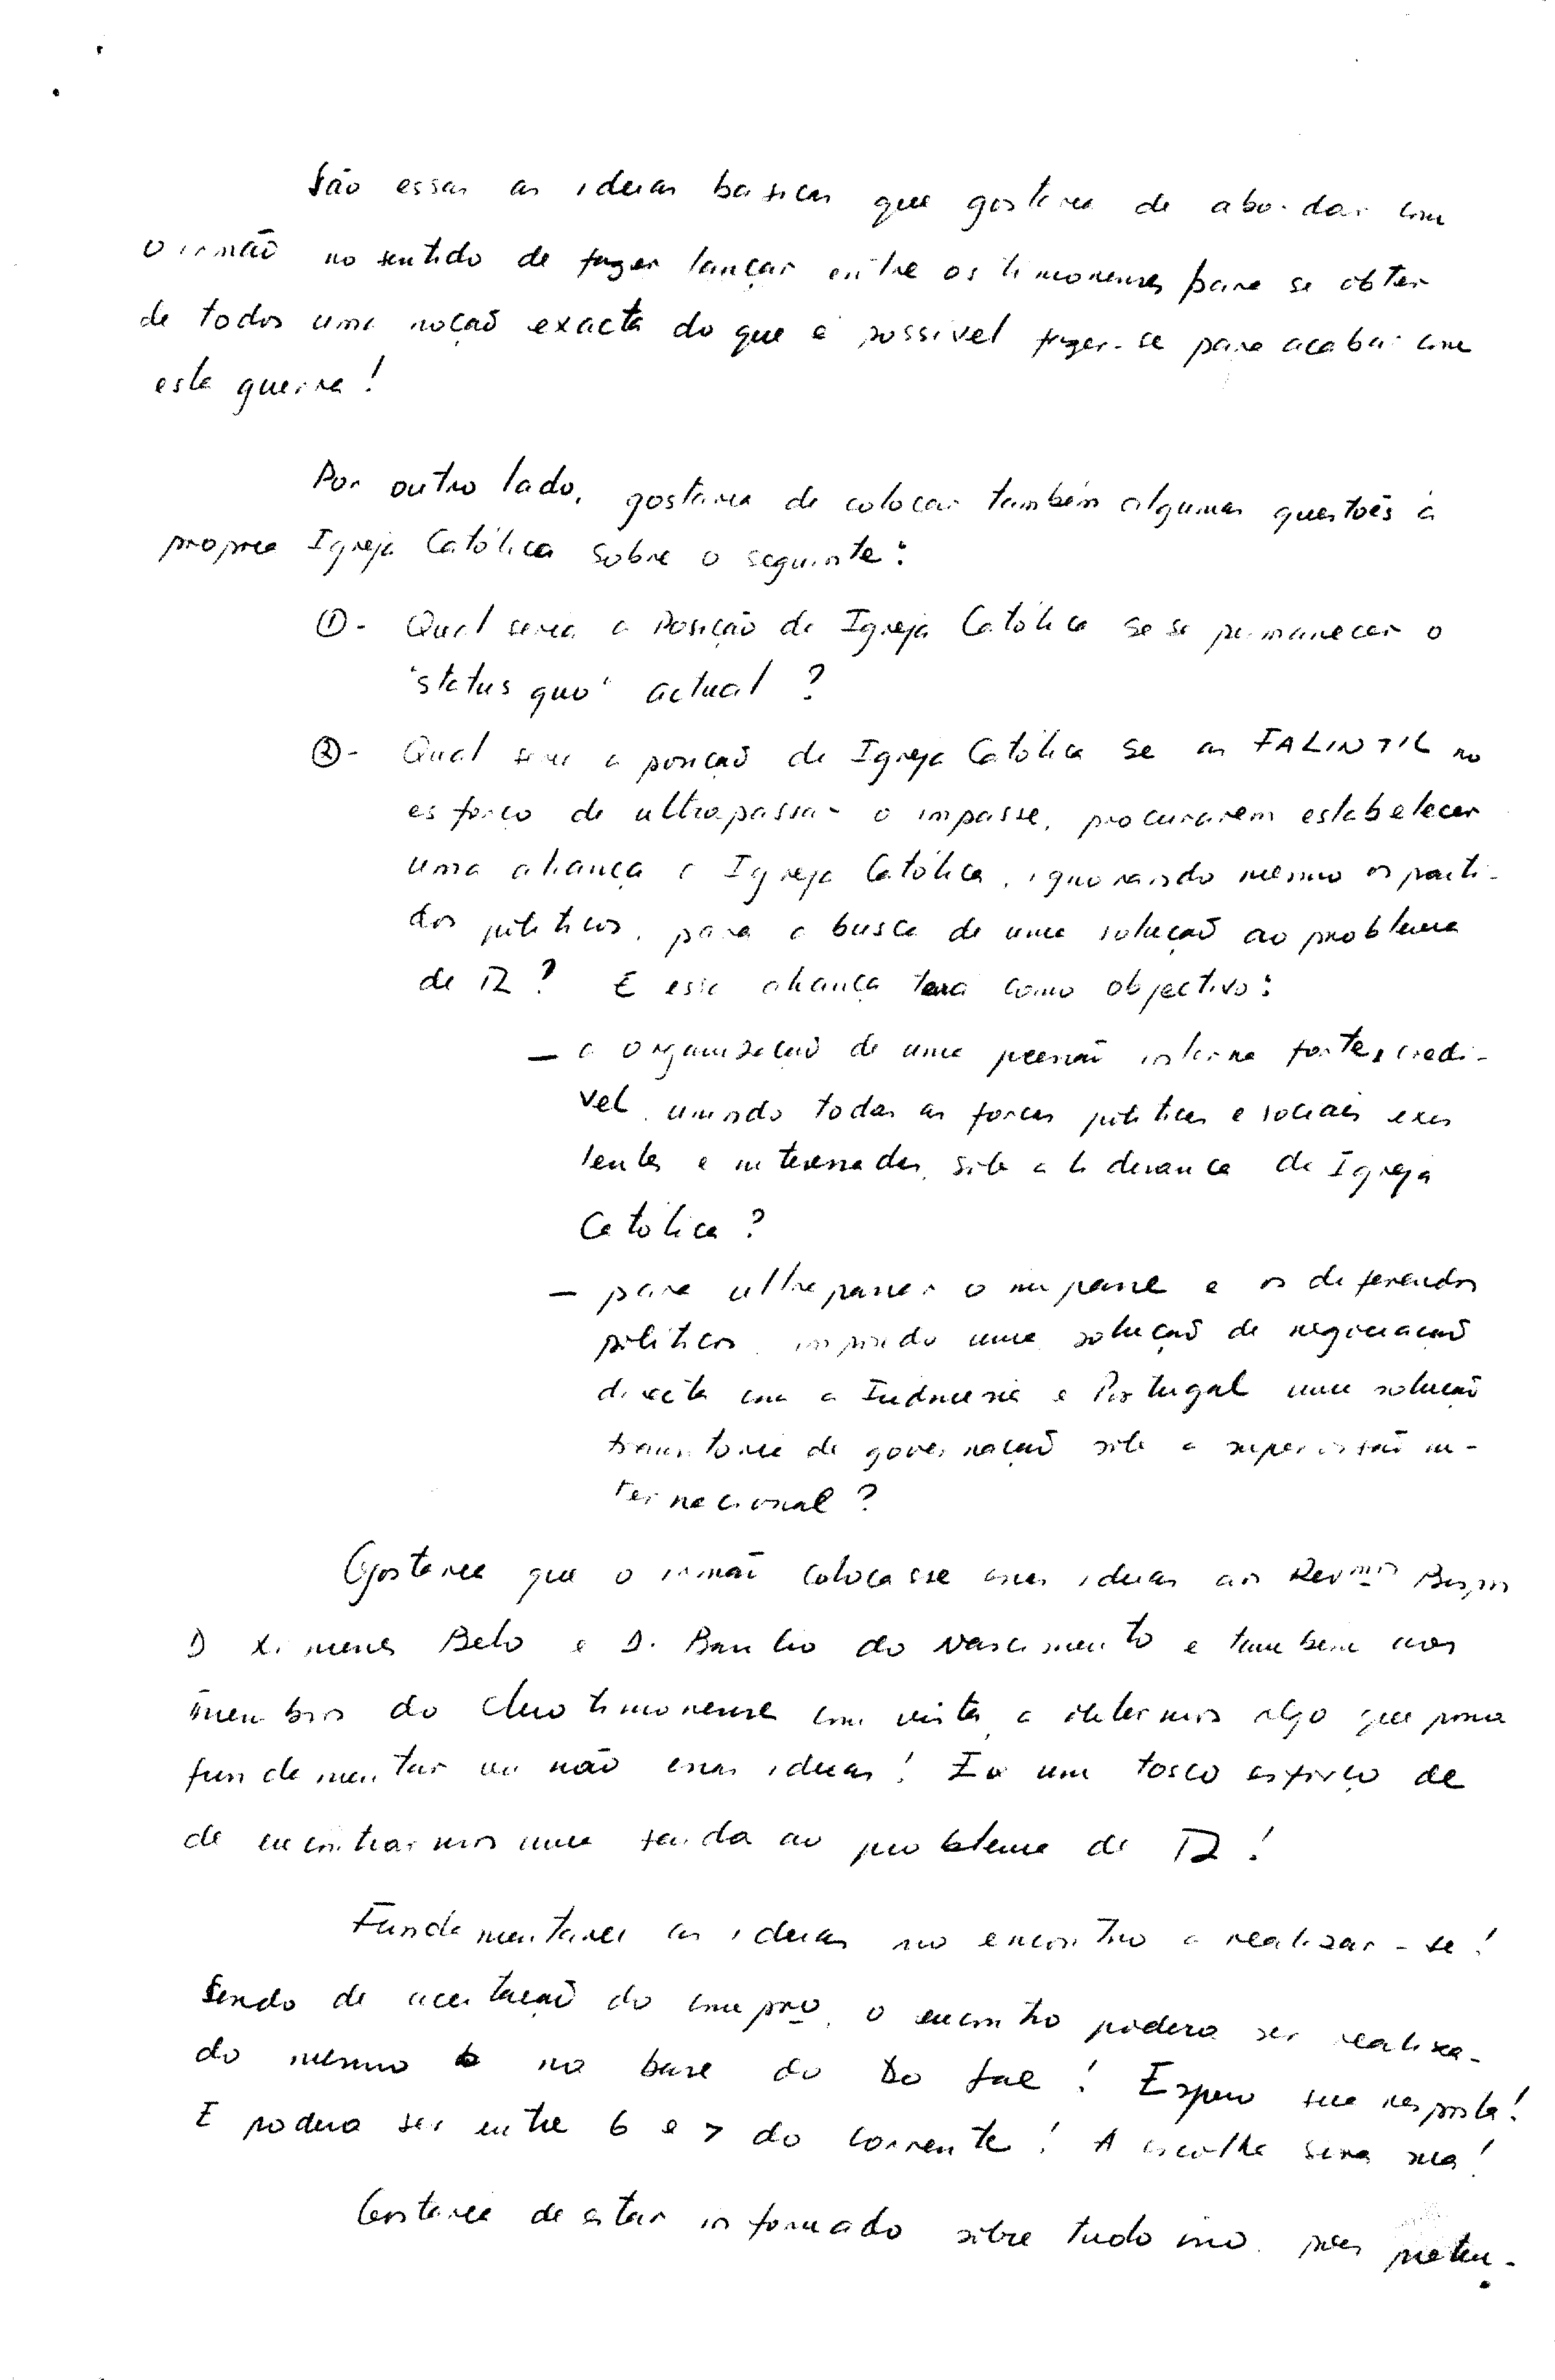 São essas as ideias basicas que gostaria de abordar com
o irmão no sentido de fazer lançar entre os timorenses para se obter
de todos uma noção exacta do que é possivel fazer-se para acabar com
esta guerra!
Por outro lado, gostaria de colocar também algumas questões à
propria Igreja Católica sobre o seguinte:
① - Qual seria a Posição da Igreja Católica se se permanecer o
"status quo" actual ?
② - Qual seria a posição da Igreja Católica se as FALINTIL no
esforço de ultrapassar o impasse, procurarem estabelecer
uma aliança à Igreja Católica, ignorando mesmo os parti-
dos politicos, para a busca de uma solução ao problema
de TL ? E essa aliança terá como objectivo:
— a organização de uma pressão interna forte, credi-
vel, unindo todas as forças politicas e sociais exis
tentes e interessadas, sob a liderança da Igreja
Católica ?
— para ultrapassar o impasse e os diferendos
politicos, impondo uma solução de negociação
directa com a Indonesia e Portugal uma solução
transitoria de governação sob a supervisão in-
ternacional ?
Gostaria que o irmão colocasse essas ideias aos Revmos Bispos
D. Ximenes Belo e D. Basilio do Nascimento e tambem aos
membros do clero timorense com vista a obtermos algo que possa
fundamentar ou não essas ideias! É um tosco esforço de
de encontrarmos uma saída ao problema de TL !
Fundamentarei as ideias no encontro a realizar-se!
Sendo de aceitação do o encontro poderá ser realiza-
do mesmo na base do ! Espero sua resposta!
E poderá ser entre 6 e 7 do corrente! A escolha será sua!
Gostaria de estar informado sobre tudo isso, pois preten-